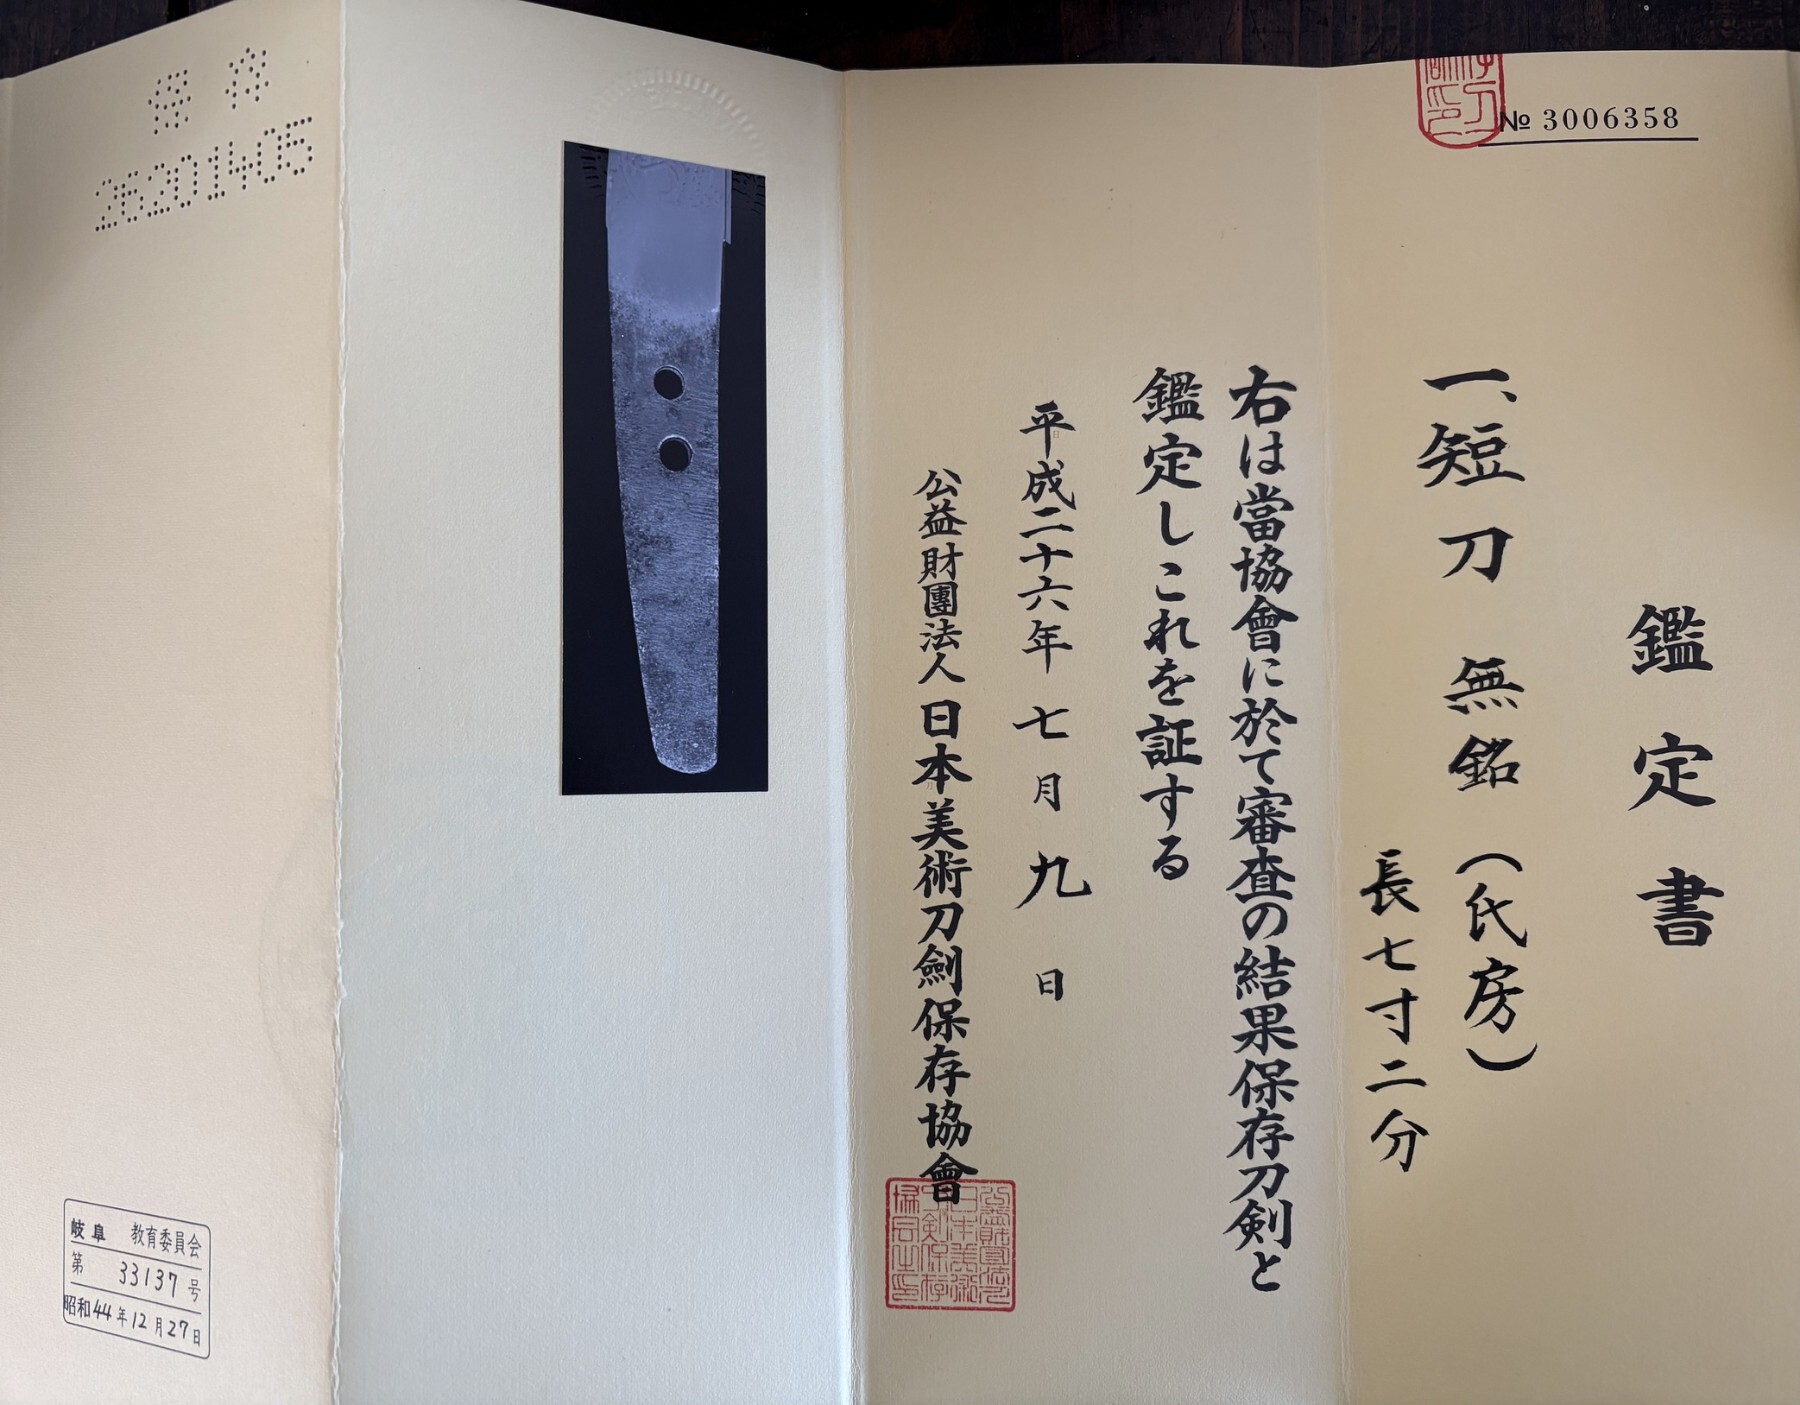 № 3006358
鑑定書
一、短刀 無銘(氏房)
長七寸二分
右は當協會に於て審査の結果保存刀剣と
鑑定しこれを証する
平成二十六年 七月 九日
公益財團法人 日本美術刀劍保存協會
保存
26201405
岐阜 教育委員会
第 33137 号
昭和44年12月27日